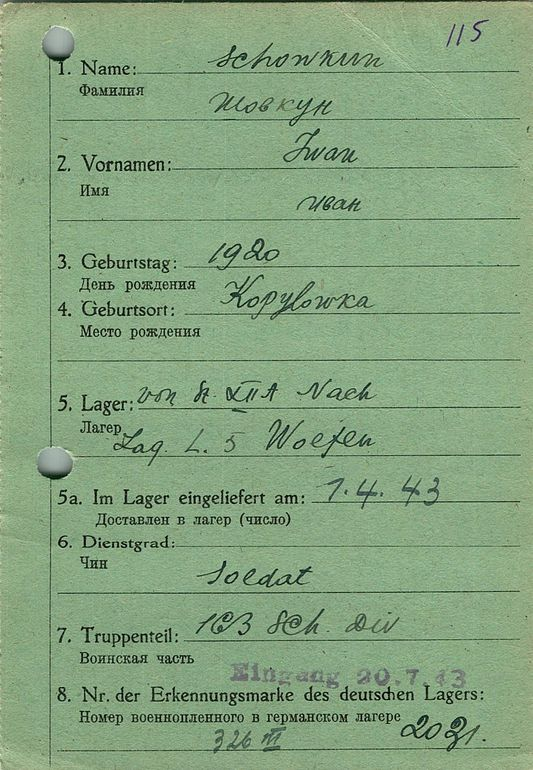 115
1. Name: Schowkun
Фамилия
Шовкун
2. Vornamen: Iwan
Имя
иван
3. Geburtstag: 1920
День рождения
4. Geburtsort: Kopylowka
Место рождения
5. Lager: von St. XII A Nach
Лагер Lag. L. 5
5a. Im Lager eingeliefert am: 1.4.43
Доставлен в лагер (число)
6. Dienstgrad:
Чин
Soldat
7. Truppenteil: Sch. Div
Воинская часть
Eingang 20.7.43
8. Nr. der Erkennungsmarke des deutschen Lagers:
Номер военнопленного в германском лагере
326 III